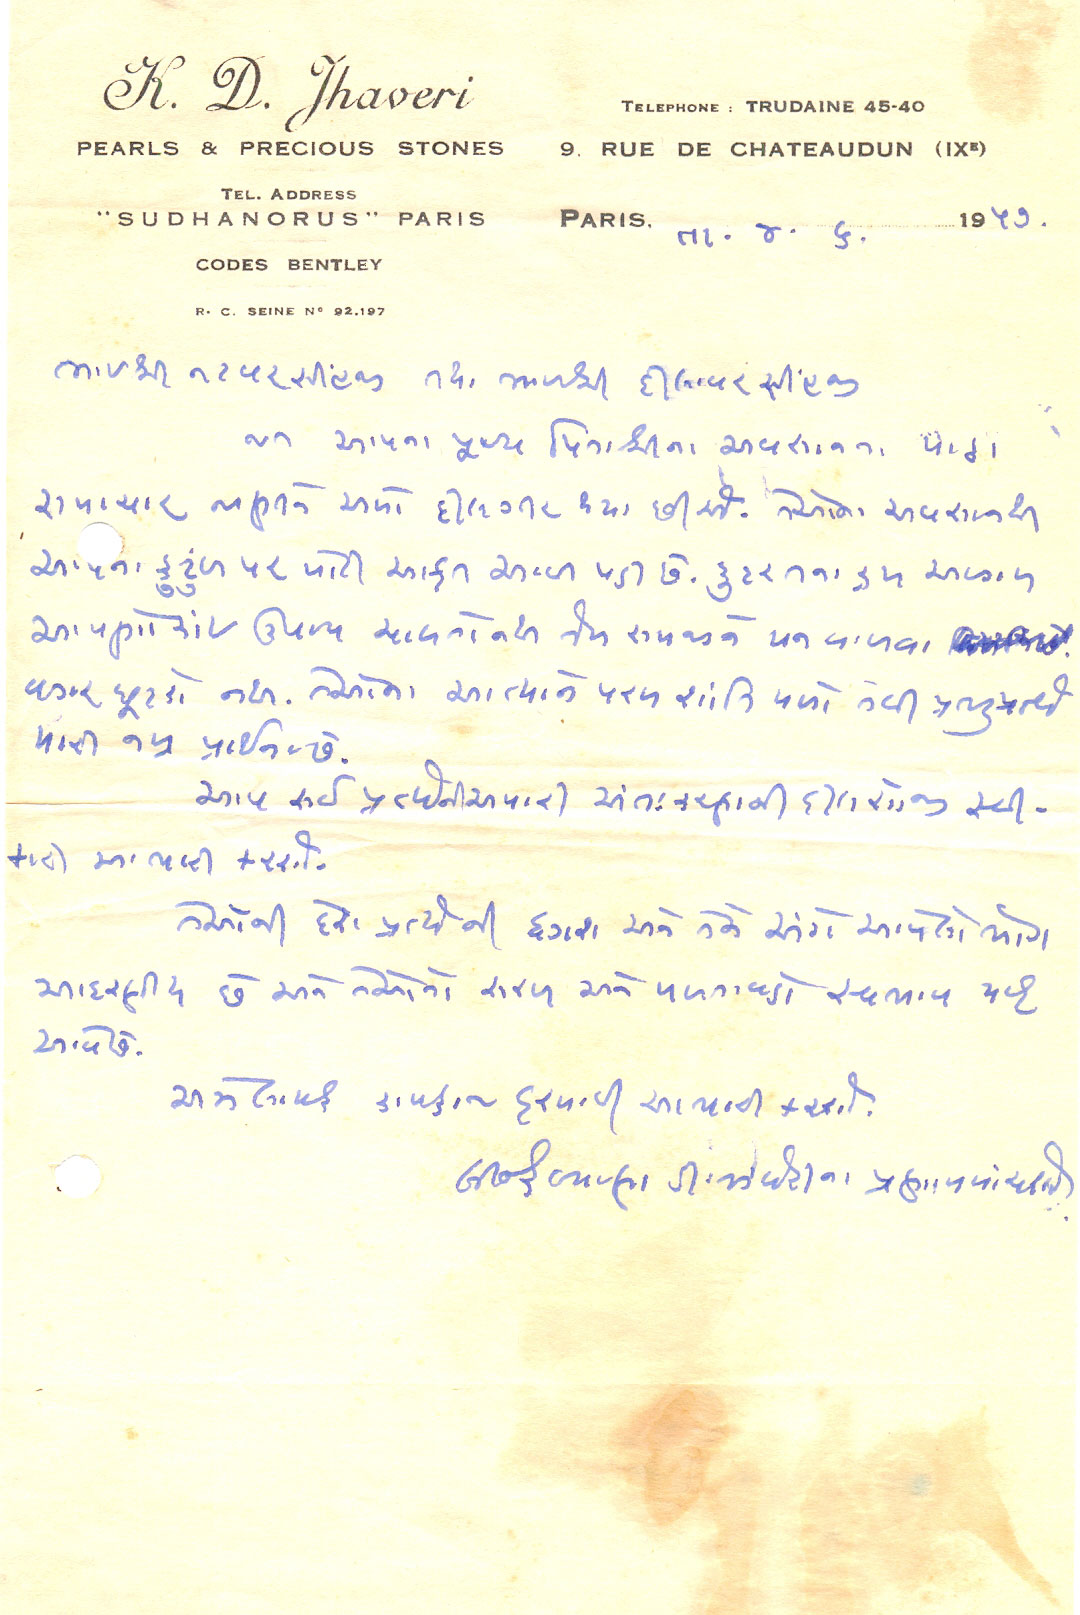 K. D. Jhaveri
PEARLS & PRECIOUS STONES
TEL. ADDRESS
"SUDHANORUS" PARIS
CODES BENTLEY
R. C. SEINE Nº 92.197
TELEPHONE : TRUDAINE 45-40
9. RUE DE CHATEAUDUN (IXE)
PARIS, તા. ૪. ૬. 1957.
ભાઈશ્રી નટવરસીંહજી તથા ભાઈશ્રી દીલાવરસીંહજી
આપના પુજ્ય પિતાશ્રીના અવસાનના માઠા
સમાચાર જાણીને અમો દીલગીર થયા છીએ. તેઓના અવસાનથી
આપના કુટુંબ પર મોટી આફત આવી પડી છે. કુદરતના ક્રમ આગળ
આપણો કાંઈ ઉપાય ચાલતો નથી તેમ સમજીને મન વાળવા
વગર છુટકો નથી. તેઓના આત્માને પરમ શાંતિ મળો તેવી પ્રભુ પ્રત્યે
મારી નમ્ર પ્રાર્થના છે.
આપ સર્વ પ્રત્યેની અમારી અંતઃકરણની દીલસોજી સ્વી-
કારી આભારી કરશો.
તેઓની દેશ પ્રત્યેની ધગશ અને તેને અંગે આપેલો ભોગ
આદરણીય છે અને તેઓનો સરળ અને મળતાવડો સ્વભાવ યાદ
આવે છે.
અત્રે લાયક કામકાજ ફરમાવી આભારી કરશો.
પ્રણામ વાંચશો